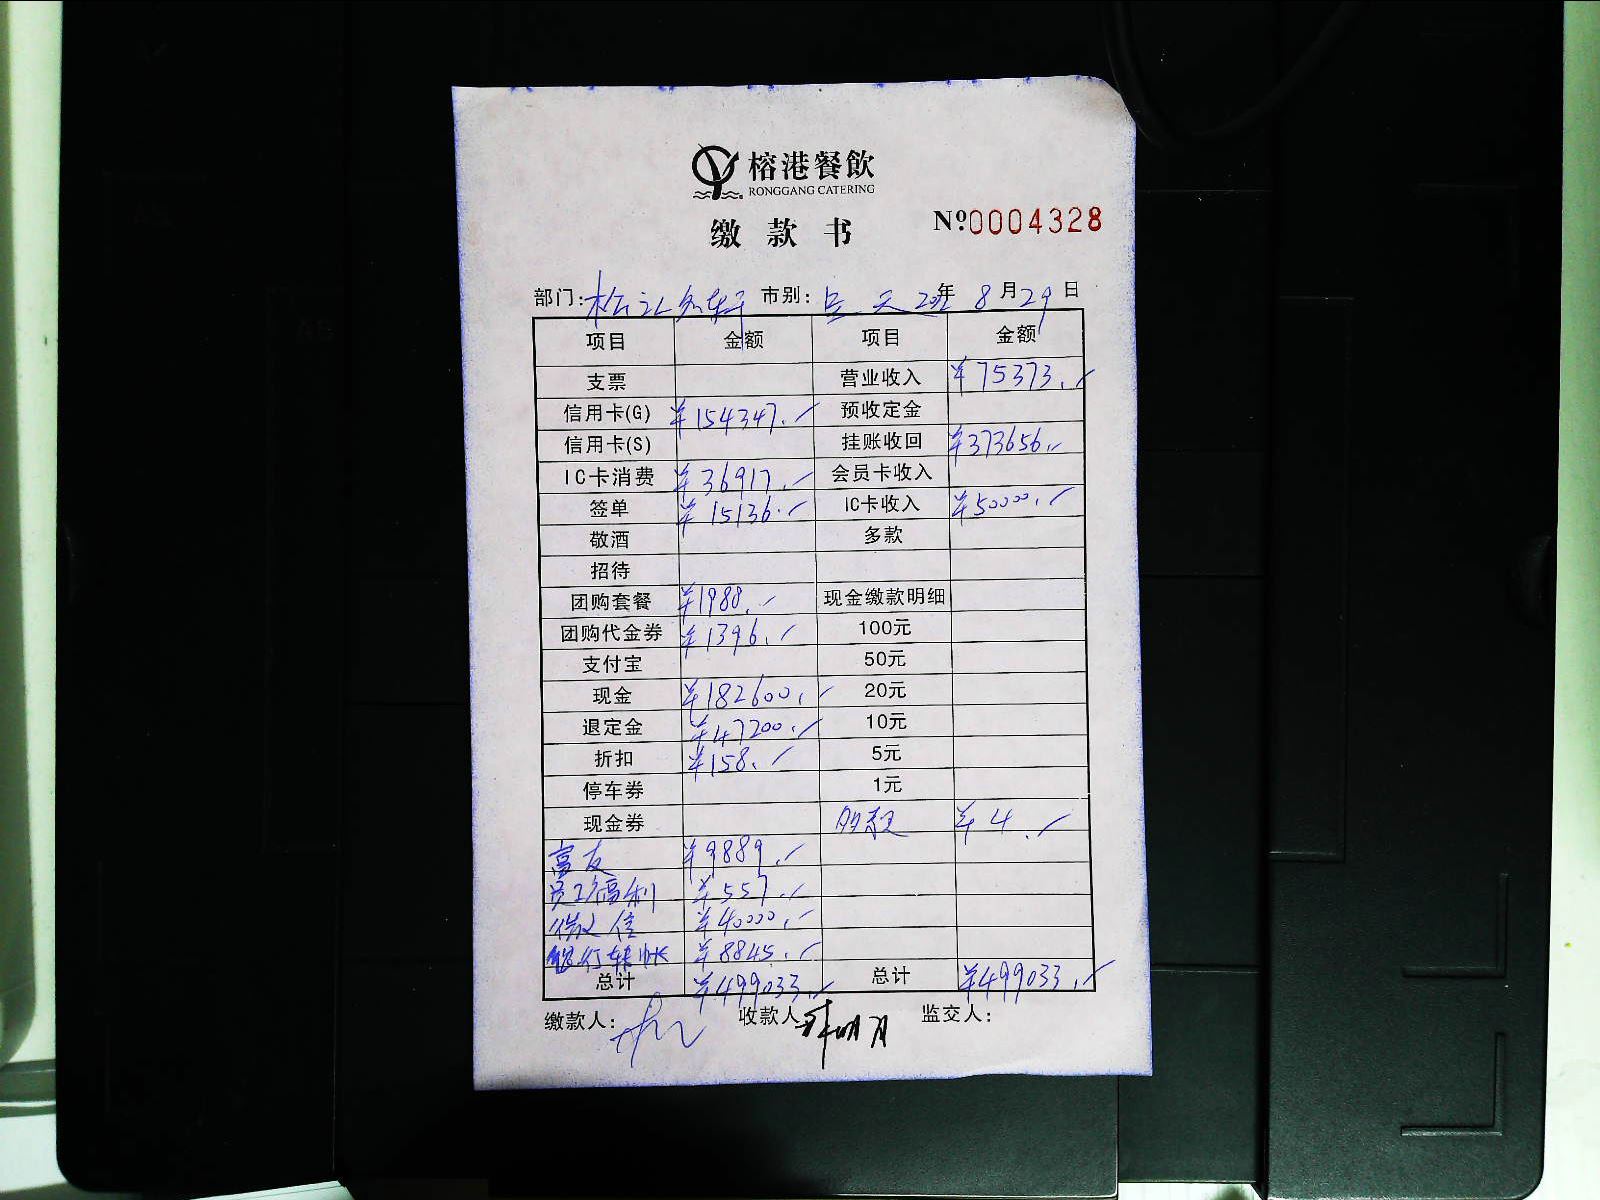 榕港餐飲
RONGGANG CATERING
缴款书
№0004328
部门: 市别: 全天 年 8 月 29 日
项目 金额 项目 金额
支票 营业收入 ¥75373.
信用卡(G) ¥154347. 预收定金
信用卡(S) 挂账收回 ¥373656.
IC卡消费 ¥36917. 会员卡收入
签单 ¥15136. IC卡收入 ¥50000.
敬酒 多款
招待
团购套餐 ¥1988. 现金缴款明细
团购代金券 ¥1396. 100元
支付宝 50元
现金 ¥182600. 20元
退定金 ¥47200. 10元
折扣 ¥158. 5元
停车券 1元
现金券 多款 ¥4.
富友 ¥9889.
员工福利 ¥557.
微信 ¥40000.
银行转帐 ¥8845.
总计 ¥499033. 总计 ¥499033.
缴款人: 收款人 明月 监交人: